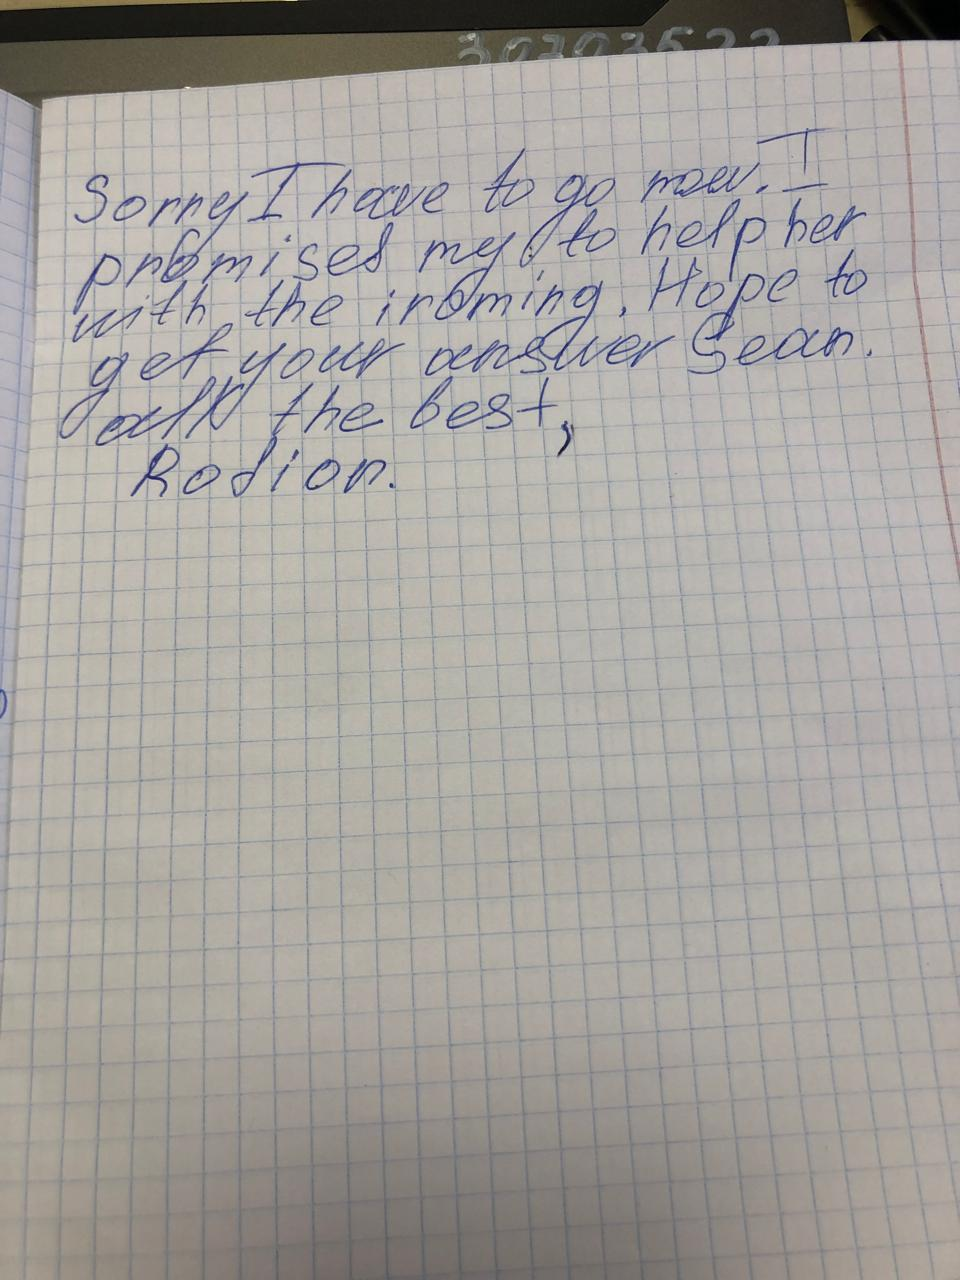 30703522
Sorry I have to go now. I
promised my to help her
with the ironing. Hope to
get your answer Sean.
all the best,
Rodion.